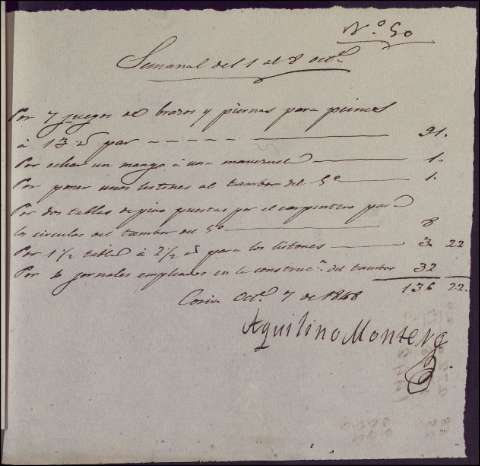 N.º 50
Semanal del 1 al 8 oct.e
Por 7 juegos de brazos y piernas para
á 13 rs par 91.
Por echar un mango á una 1.
Por poner unos listones al tambor del 5º 1.
Por dos tablas de pino puestas por el carpintero para
lo circular del tambor del 5º 8
Por 1 1/2 tabla á 2 1/2 rs para los listones 3 22
Por 4 jornales empleados en la construc.n del tambor 32
136 22.
Oct.e 7 de 1848
Aquilino Montero